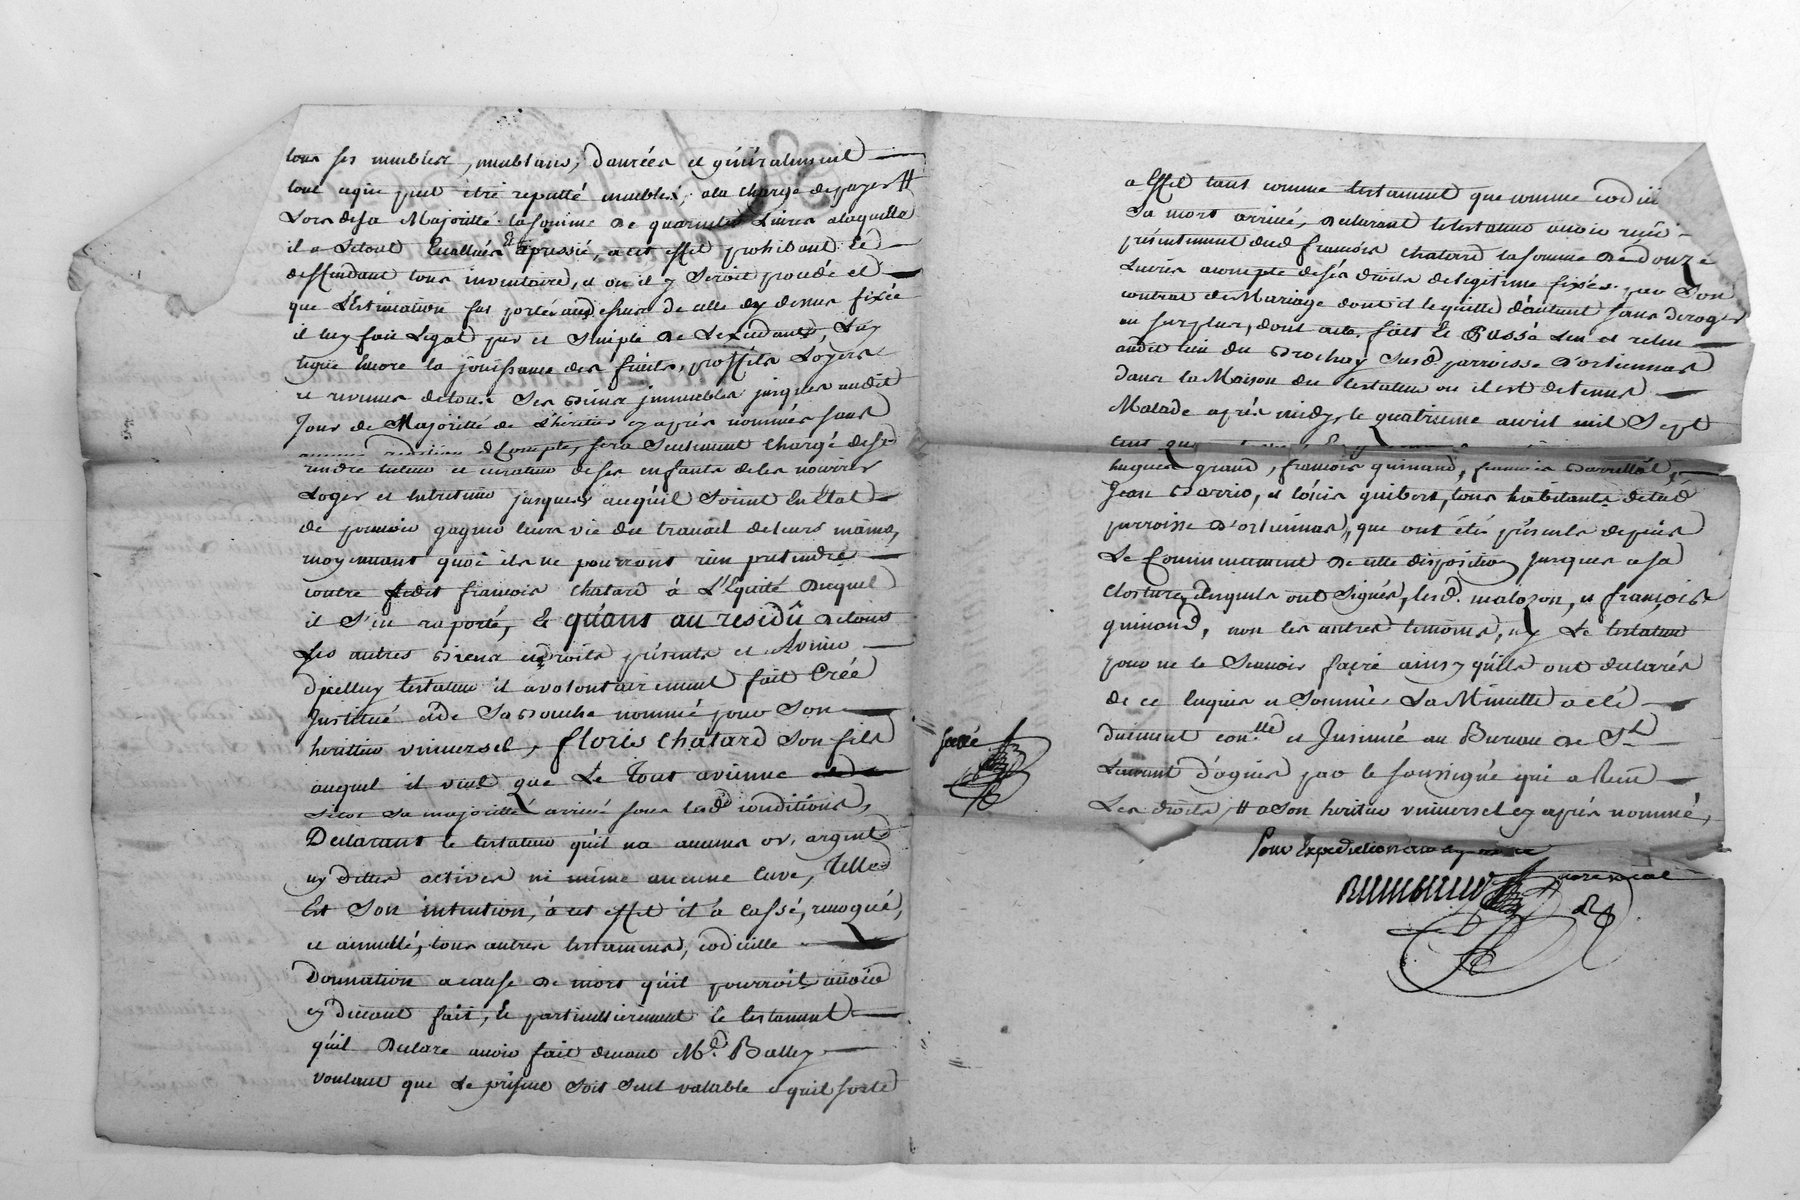 tous ses meubles, meublans, danrées et généralement
tout ce que peut être reputté meubles, ala charge de payer #
Lors de sa Majoritté la somme de quarantes Livres alaquelle
il a Letout Evalluéz Et apressié, a cet effet prohibant Et
deffendant tous inventaire, et ou il y seroit procédé et
que L'Estimation fut portée audessus de celle cy dessus fixée
il luy fait Legat pur et simple de L'excedant, Luy
legue Encore la jouissance des fruits, proffits Loyers
et revenus detous ses Biens immeubles jusques audit
Jour de Majoritté de L'héritier cy après nommés sans
aucune reddition de Compte, sera seulement chargé de se
rendre tuteur et curateur de ses enfants deles nourrir
Loger et Entretenir jusques acequ'il soient En Etat
de pouvoir gagner leurs vie du travail de leurs mains,
moyennant quoi ils ne pourront rien pretendre
contre Ledit françois Chatard à L'Equité Duquel
il s'en raporté, Et quant au residû de tous
Les autres Biens Droits présents et Avenir
d'icelluy testateur il a volontairement fait Créé
Institué et de Sa Bouche nommé pour Son
herittier vniversel, floris Chatard Son fils
auquel il veut que Le Tout avienne
Lors Sa majoritté arrivé sous lesd conditions,
Declarant le testateur qu'il na aucuns or, argent
ny dettes actives ni même aucune cuve, Telle
Est Son intention, à cet effet il a cassé, revoqué,
et annullé, tous autres testamens, codicille
Donnation a cause de mort qu'il pourroit avoir
cy devant fait, Et particullièrement Le testament
qu'il Declare avoir fait devant Me Balley
voulant que Le présent soit seul valable et qu'il sorte
a Effet tant comme testament que comme codicil
Sa mort arrivée, Declarant letestateur avoir reçû
présentement dud françois Chatard lasomme De douze
Livres acompte deses droits de legitime fixés par Son
contrat de Mariage dont il le quitte d'autant sans deroger
au surplus, dont acte, fait Et Passé Leu et releu
audit lieu du Brochay susd parroisse D'ortiennas
dans la Maison du testateur ou il est detenus
Malade après midy, le quatrieme avril mil Sept
Cent
hugues grand, françois guinand, francois
Jean Barrio, et Loüis guibert, tous habitants de lad
parroisse D'ortiennas, que ont été présents depuis
Le Commencement De cette disposition jusques a sa
Closture, desquels ont signés, lesd. malozon, et françois
guinand, non les autres temoins, ny Le testateur
pour ne le Scavoir faire ainsy quils ont declarés
de ce Enquis et Sommés La Minutte a eté
duement conlle et Insinué au Bureau De St
Laurant d'ognis par le soussigné qui a Reçu
Les droits, # a Son heritier vniversel cy après nommé,
Pour Expedition